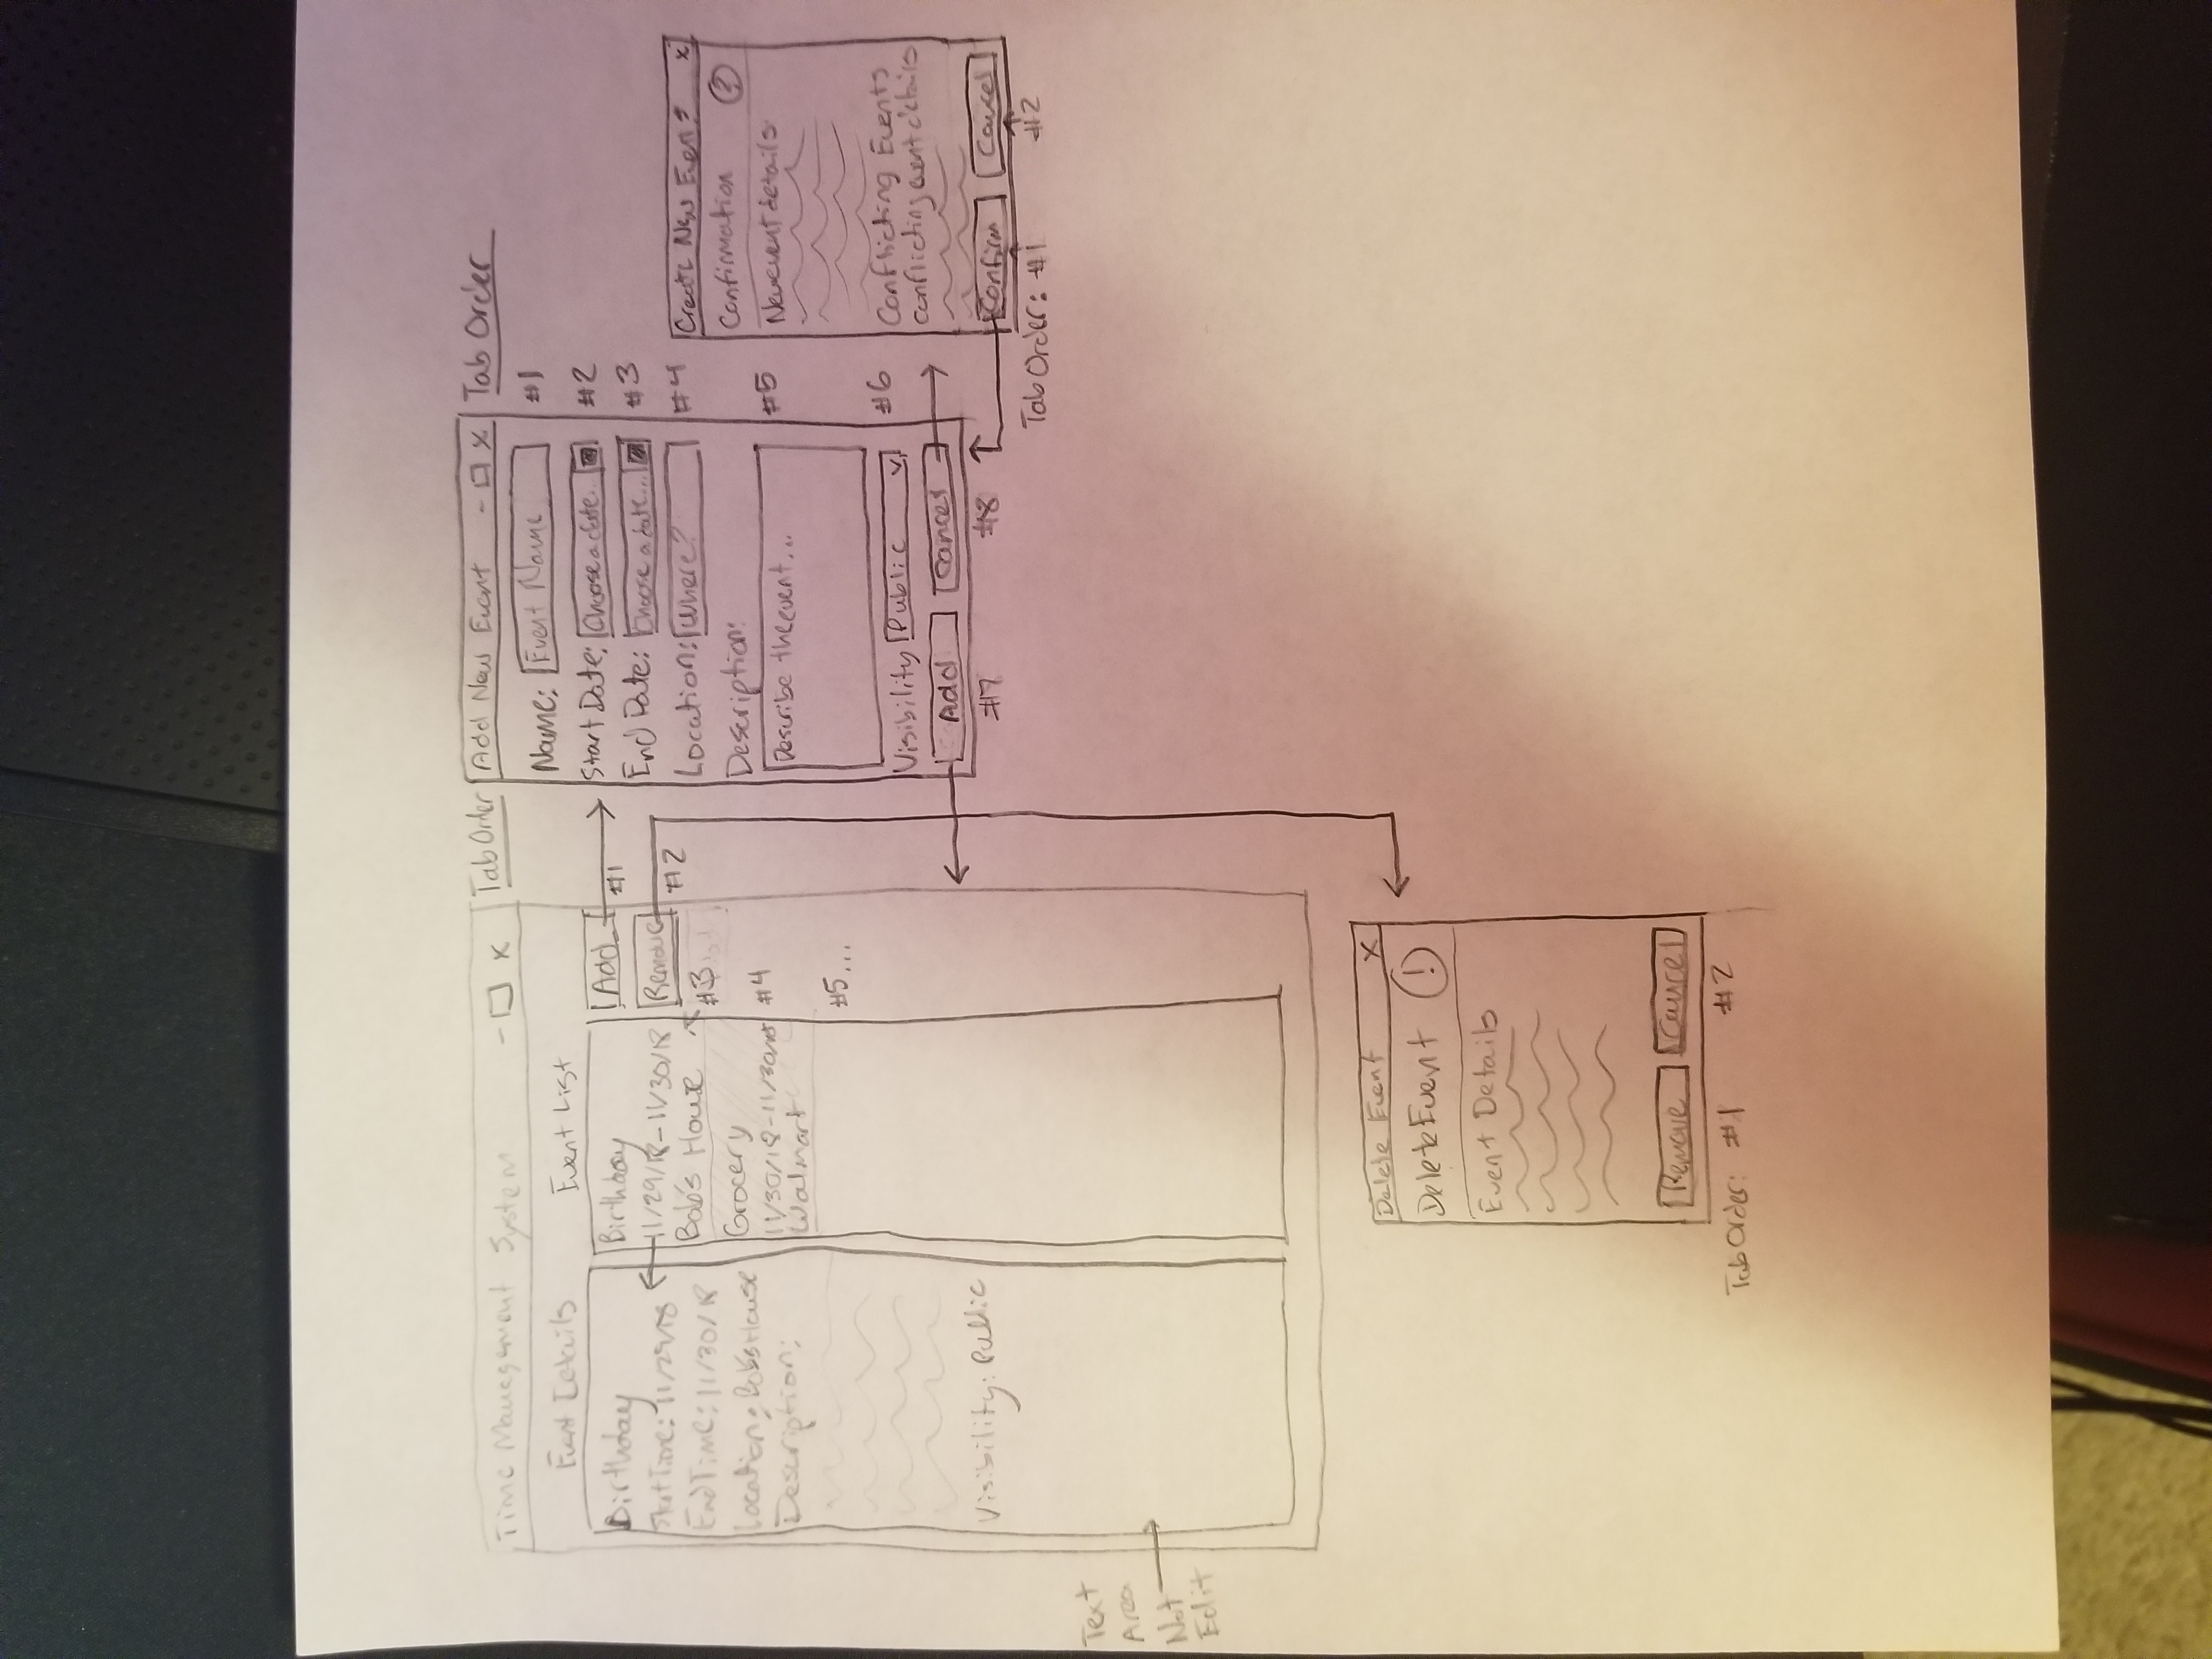 Time Management System - □ x
Event Details
Birthday
Start Time: 11/29/18
End Time: 11/30/18
Location: Bob's House
Description:
Visibility: Public
Text
Area
Not
Edit
Event List
Birthday
11/29/18-11/30/18
Bob's House
Grocery
11/30/18-11/30/18
Walmart
Tab Order
Add
#1
Remove
#2
#3
#4
#5...
Add New Event - □ x
Name: Event Name
Start Date: Choose a date...
End Date: Choose a date...
Location: Where?
Description:
Describe the event...
Visibility Public v
Add Cancel
#7 #8
Tab Order
#1
#2
#3
#4
#5
#6
Create New Event? x
Confirmation ?
New event details
Conflicting Events
conflicting event details
Confirm Cancel
Tab Order: #1 #2
Delete Event x
Delete Event !
Event Details
Remove Cancel
Tab Order: #1 #2